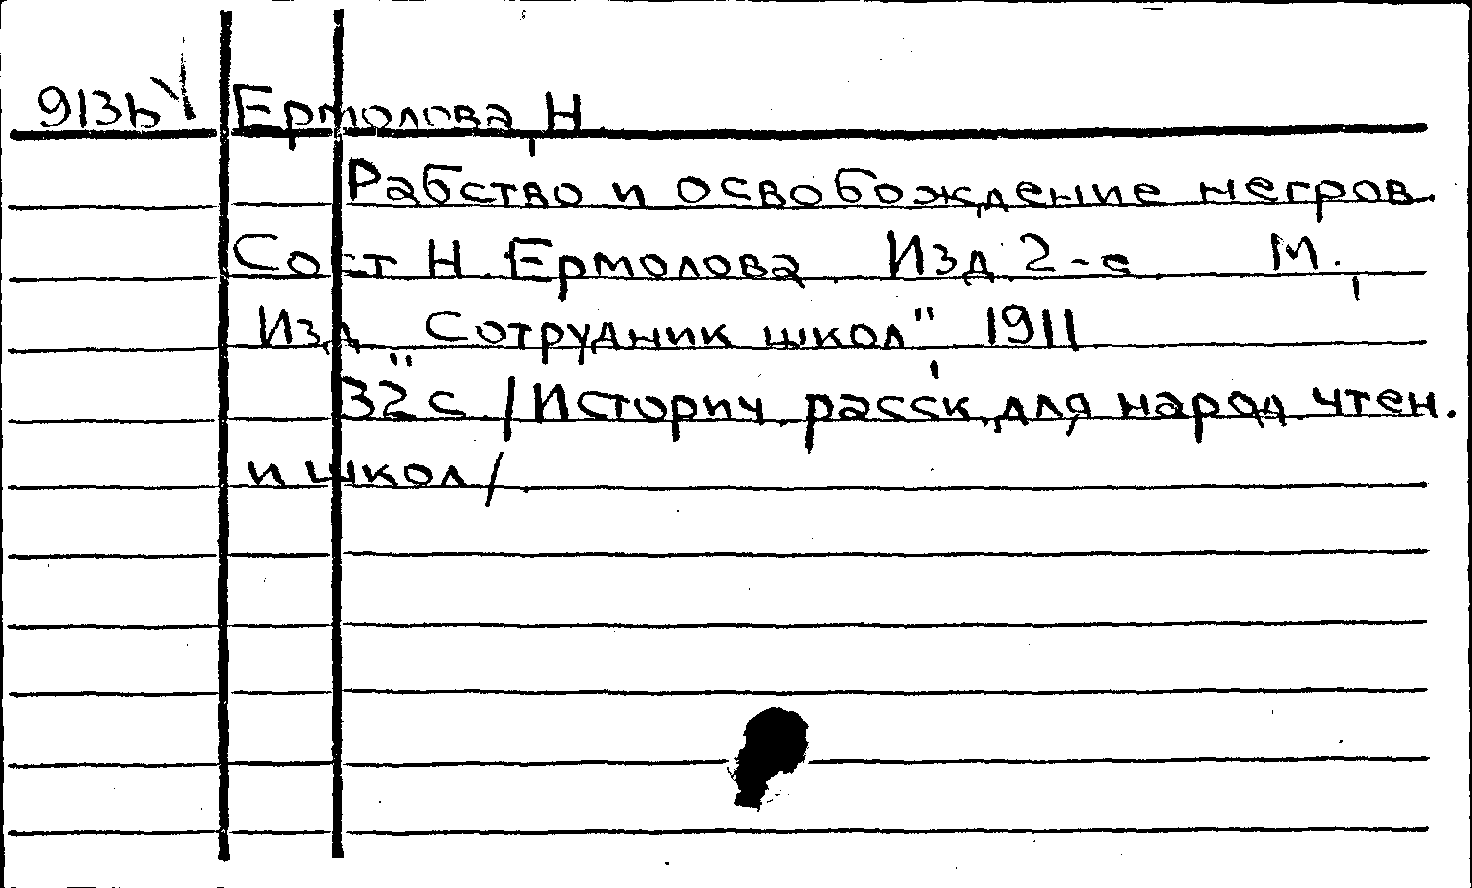 Ермолова, Н.
Рабство и освобождение негров.
Сост. Н. Ермолова. Изд. 2-е. М.,
Изд. „Сотрудник школ", 1911.
32 с. /Историч. расск. для народ. чтен.
и школ/.